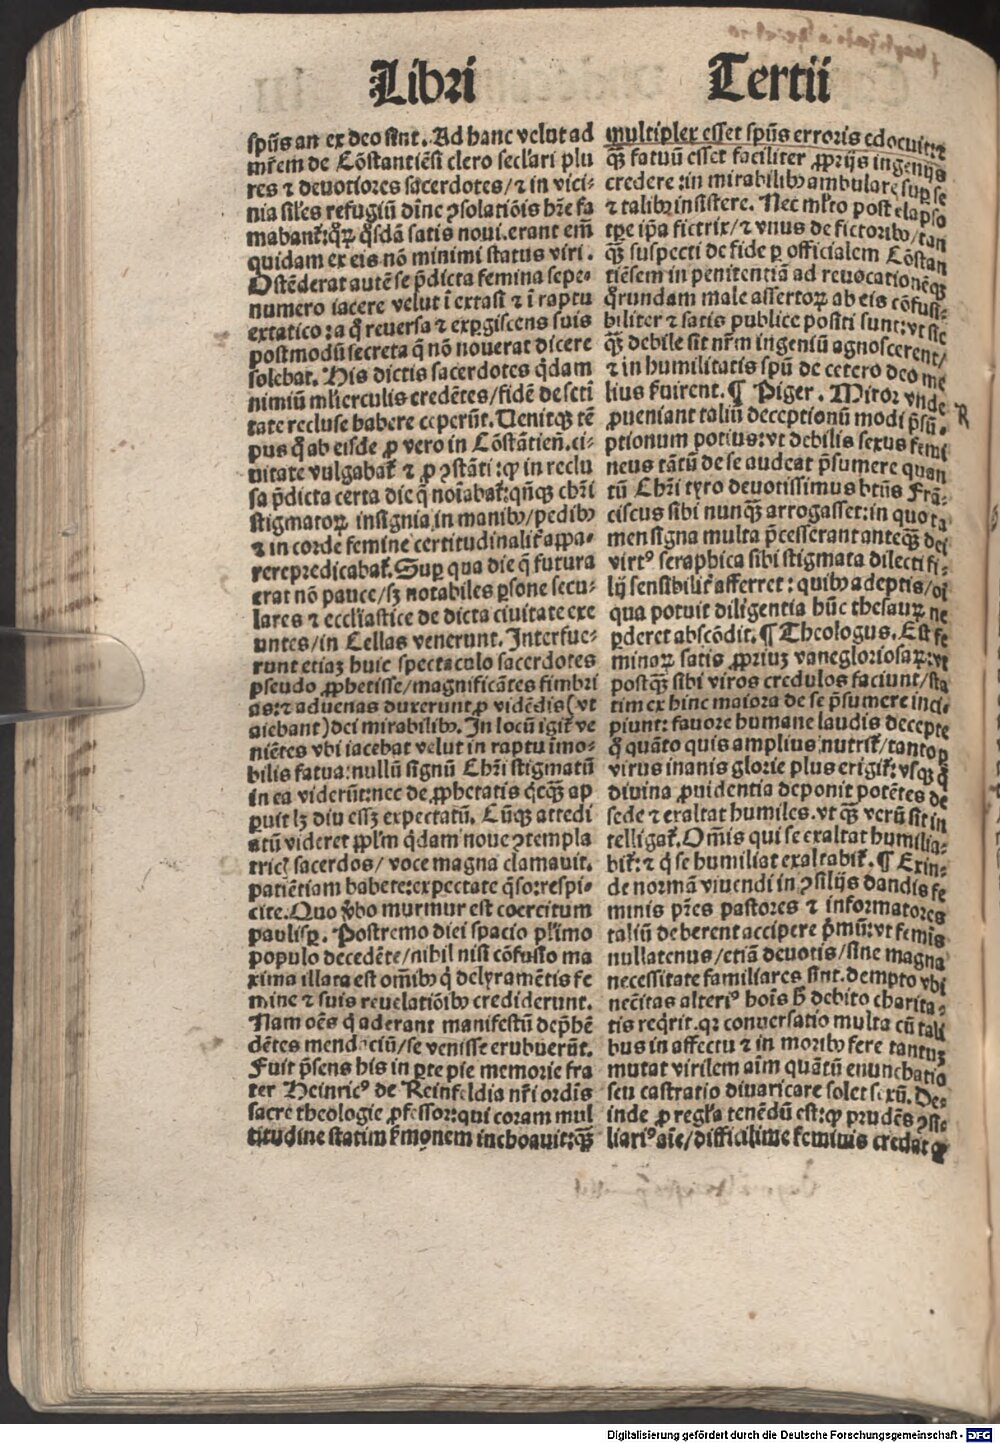 Libri Tertii
spũs an ex deo sint. Ad hanc velut ad
mr̃em de Cõstantiẽsi clero secl'ari plu
res ⁊ deuotiores sacerdotes/⁊ in vici-
nia sil'es refugiũ dĩne ꝯsolatiõis hr̃e fa
mabant᷑:qꝝ qͥsdã satis noui.erant em̃
quidam ex eis nõ minimi status viri.
Ostẽderat autẽ se p̃dicta femina sepe-
numero iacere velut ĩ extasi ⁊ ĩ raptu
extatico:a qͦ reuersa ⁊ exꝑgiscens suis
postmodũ secreta q̃ nõ nouerat dicere
solebat. His dictis sacerdotes qͥdam
nimiũ ml'ierculis credẽtes/fidẽ de scti
tate recluse habere ceperũt. Venitqꝫ tẽ
pus qͦ ab eisdẽ ꝓ vero in Cõstãtieñ.ci-
uitate vulgabat᷑ ⁊ ꝓ ꝯstãti:ꝙ in reclu
sa p̃dicta certa die q̃ noĩabat᷑:qñqꝫ chr̃i
stigmatoꝝ insignia in manibꝰ/pedibꝰ
⁊ in corde femine certitudinalit᷑ appa-
rere predicabat᷑. Suꝑ qua die q̃ futura
erat nõ pauce/sꝫ notabiles ꝑsone secu-
lares ⁊ eccl'iastice de dicta ciuitate exe
untes/in Cellas venerunt. Interfue-
runt etiaꝫ huic spectaculo sacerdotes
pseudo ꝓphetisse/magnificãtes fimbri
as:⁊ aduenas duxerunt ꝓ vidẽdis (vt
aiebant) dei mirabilibꝰ. In locũ igit᷑ ve
niẽtes vbi iacebat velut in raptu ĩmo-
bilis fatua:nullũ signũ Chr̃i stigmatũ
in ea viderũt:nec de ꝓphetatis qͥcqꝫ ap
ꝑuit lꝫ diu essꝫ expectatũ. Cũqꝫ attedi
atũ videret ppl'm qͥdam noue ꝯtempla
tricꝭ sacerdos/ voce magna clamauit.
patiẽtiam habete:expectate q̃so:respi-
cite. Quo v̾bo murmur est coercitum
paulisꝑ. Postremo diei spacio pl'imo
populo decedẽte/nihil nisi cõfusio ma
xima illata est om̃ibꝰ qͥ delyramẽtis fe
mine ⁊ suis reuelatiõibꝰ crediderunt.
Nam oẽs qͥ aderant manifestũ dep̃hẽ
dẽtes mendaciũ/se venisse erubuerũt.
Fuit p̃sens his in ꝑte pie memorie fra
ter Heinricꝰ de Reinfeldia nr̃i ordĩs
sacre theologie ꝓfessor:qui coram mul
titudine statim s̾monem inchoauit:qꝫ
multiplex esset spũs erroris edocuit:⁊
qꝫ fatuũ esset faciliter ꝓprijs ingenijs
credere:in mirabilibꝰ ambulare suꝑ se
⁊ talibꝰ insistere. Nec ml'to post elapso
tꝑe ip̃a fictrix/⁊ vnus de fictoribꝰ/tan
qꝫ suspecti de fide ꝑ officialem Cõstan
tiẽsem in penitentiã ad reuocationẽqꝫ
qͦrundam male assertoꝝ ab eis cõfusi-
biliter ⁊ satis publice positi sunt:vt sic
qꝫ debile sit nr̃m ingeniũ agnoscerent/
⁊ in humilitatis spũ de cetero deo me
lius s̾uirent. ¶ Piger. Miror vnde
ꝓueniant taliũ deceptionũ modi p̃sũ-
ptionum potius:vt debilis sexus femi
neus tãtũ de se audeat p̃sumere quan
tũ Chr̃i tyro deuotissimus btũs Frã-
ciscus sibi nunqꝫ arrogasset:in quo ta
men signa multa p̃cesserant anteqꝫ dei
virtꝰ seraphica sibi stigmata dilecti fi-
lij sensibilit᷑ afferret: quibꝰ adeptis/oĩ
qua potuit diligentia hũc thesauꝝ ne
ꝑderet abscõdit. ¶ Theologus. Est fe
minaꝝ satis ꝓpriuꝫ vanegloriosaꝝ:vt
postqꝫ sibi viros credulos faciunt/sta
tim ex hinc maiora de se p̃sumere inci
piunt: fauore humane laudis decepte
qͦ quãto quis amplius nutrit᷑/tanto ꝑ
virus inanis glorie plus erigit᷑:vsqꝫ qͦ
diuina ꝓuidentia deponit potẽtes de
sede ⁊ exaltat humiles.vt qꝫ verũ sit in
telligat᷑. Om̃is qui se exaltat humilia-
bit᷑:⁊ qͥ se humiliat exaltabit᷑. ¶ Exin-
de normã viuendi in ꝯsilijs dandis fe
minis pr̃es pastores ⁊ informatores
taliũ deberent accipere p̃mũ:vt femĩs
nullatenus/etiã deuotis/sine magna
necessitate familiares sint.dempto vbi
necẽitas alteriꝰ hoĩs ħ debito charita-
tis reqͥrit.qꝛ conuersatio multa cũ tali
bus in affectu ⁊ in moribꝰ fere tantuꝫ
mutat virilem aĩm quãtũ enuchatio
seu castratio diuaricare solet sexũ. De-
inde ꝓ regl'a tenẽdũ est:ꝙ prudẽs ꝯsi-
liariꝰ aĩe/difficilime feminis credat ꝙ
Digitalisierung gefördert durch die Deutsche Forschungsgemeinschaft - DFG